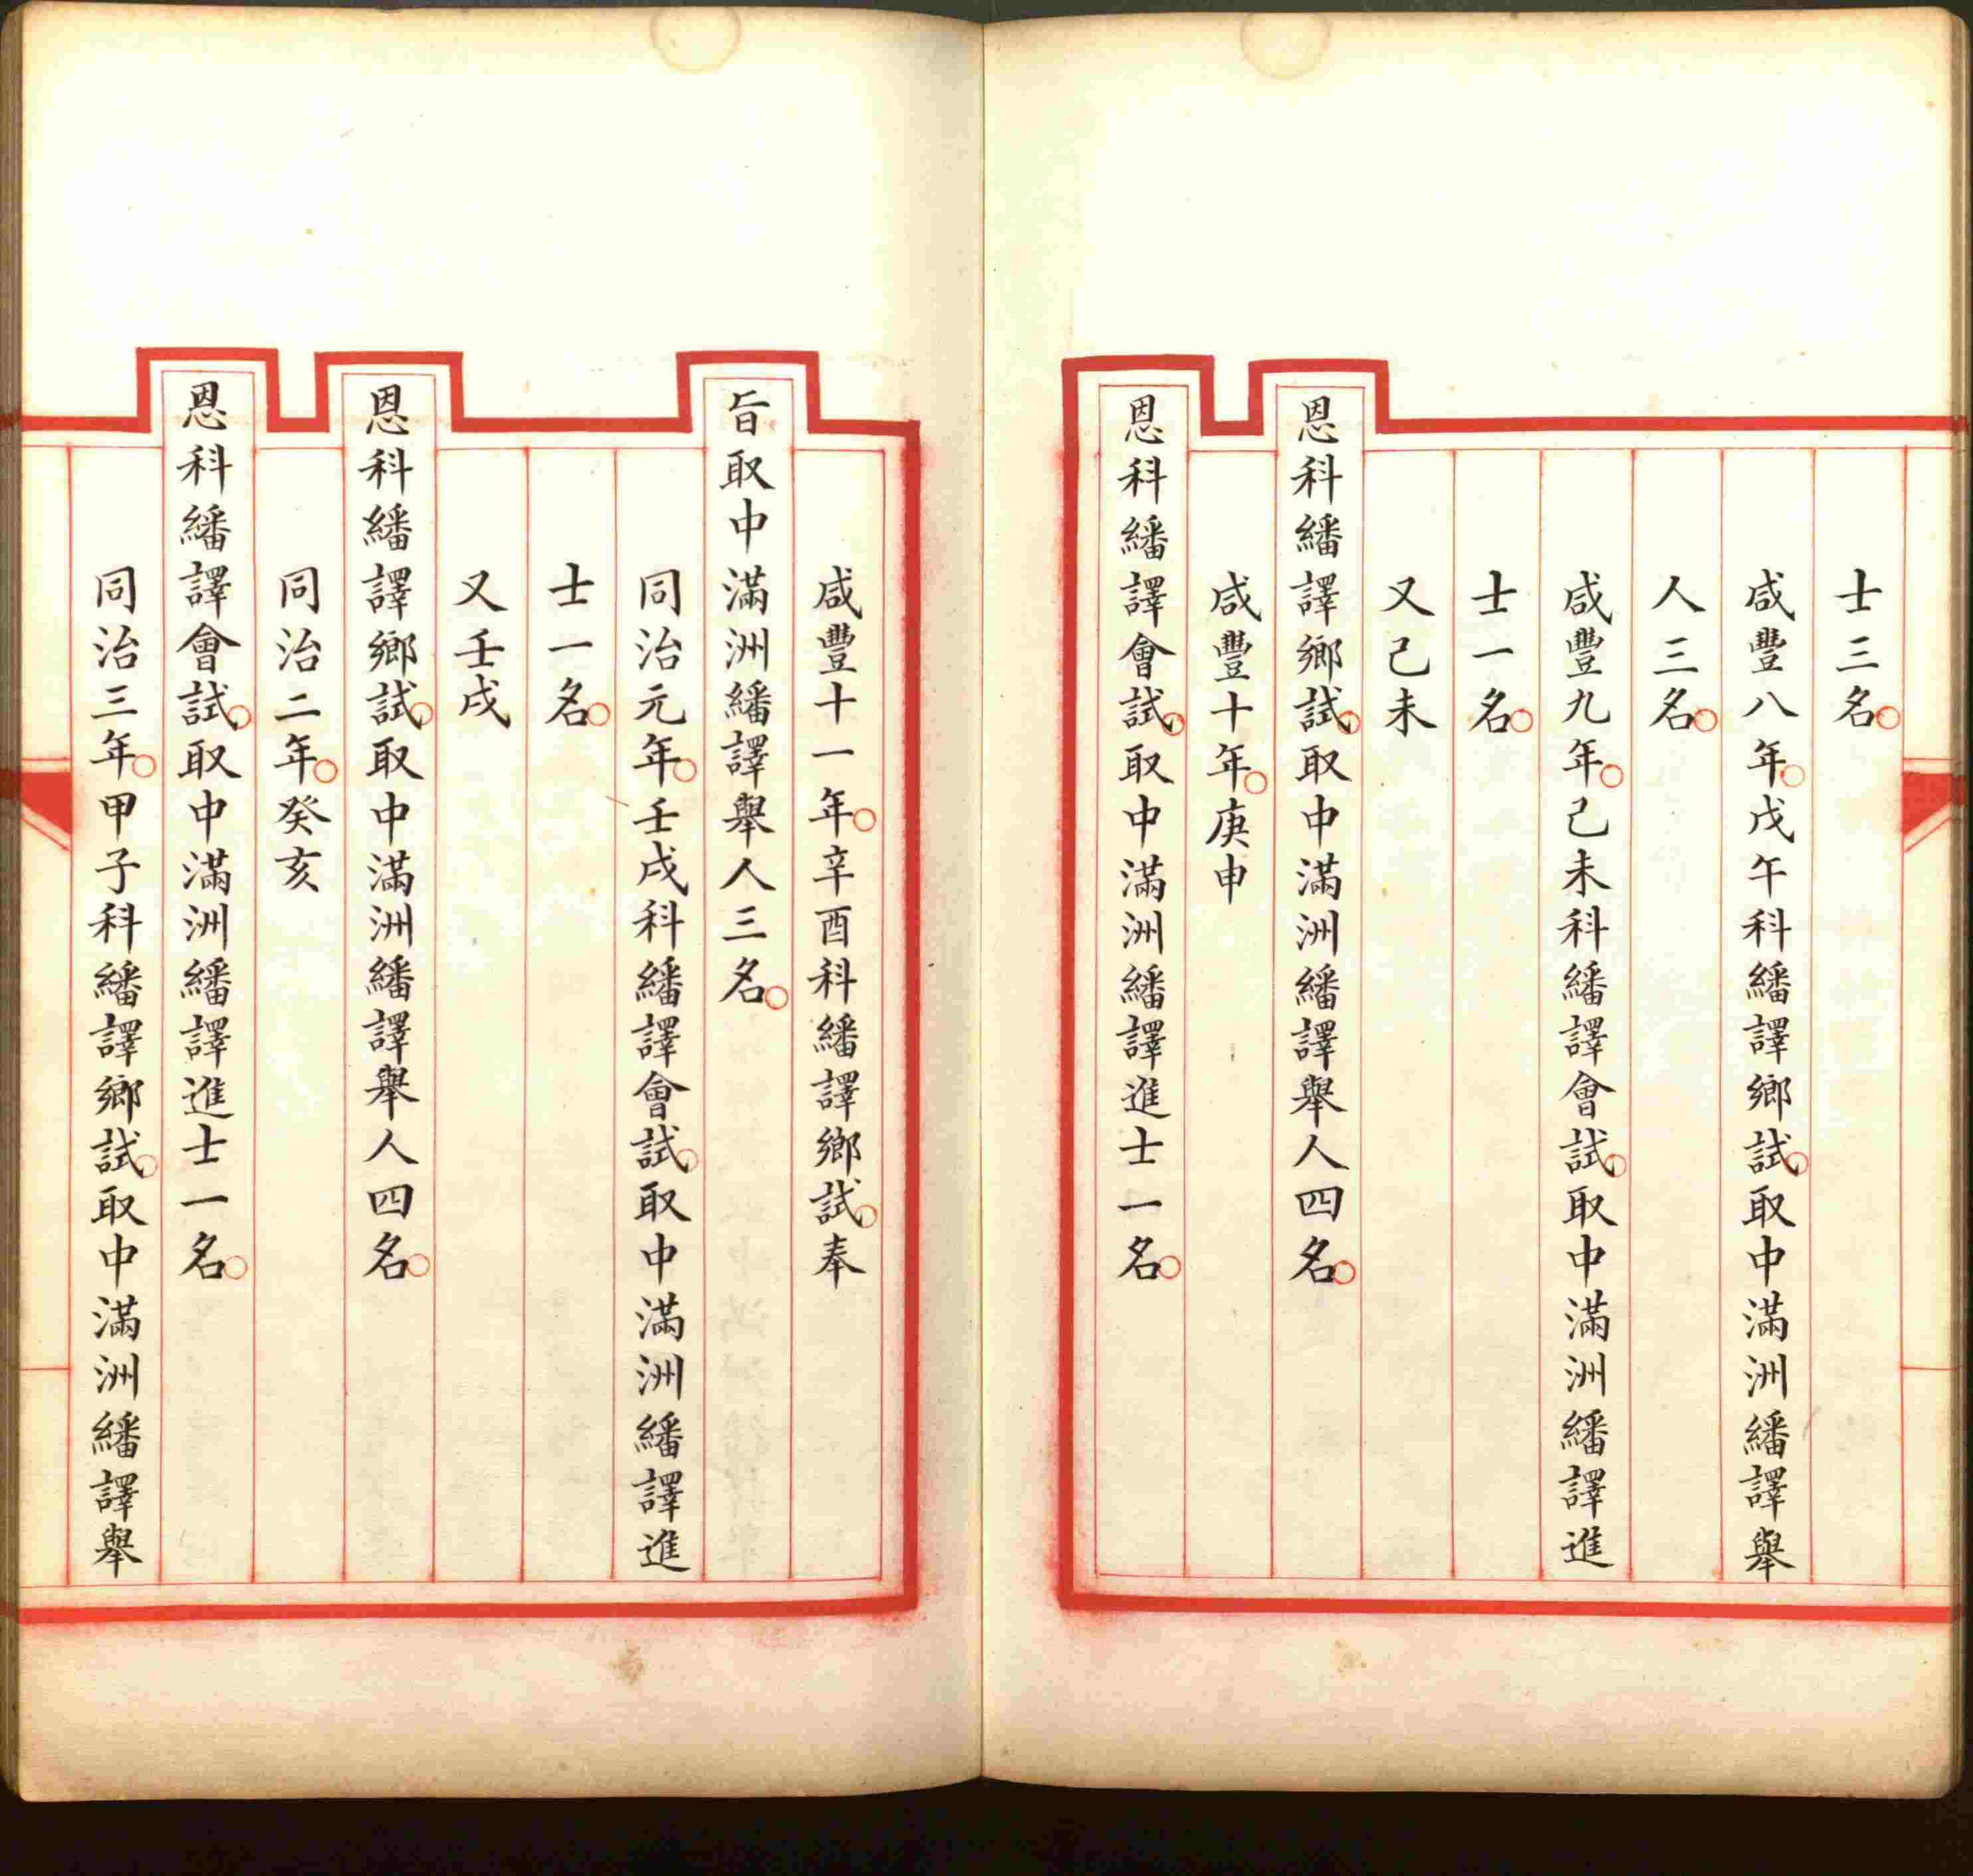 士三名○
咸豐八年○戊午科繙譯鄉試○取中滿洲繙譯舉
人三名○
咸豐九年○己未科繙譯會試○取中滿洲繙譯進
士一名○
又己未
恩科繙譯鄉試○取中滿洲繙譯舉人四名○
咸豐十年○庚申
恩科繙譯會試○取中滿洲繙譯進士一名○
咸豐十一年○辛酉科繙譯鄉試○奉
旨取中滿洲繙譯舉人三名○
同治元年○壬戌科繙譯會試○取中滿洲繙譯進
士一名○
又壬戌
恩科繙譯鄉試○取中滿洲繙譯舉人四名○
同治二年○癸亥
恩科繙譯會試○取中滿洲繙譯進士一名○
同治三年○甲子科繙譯鄉試○取中滿洲繙譯舉